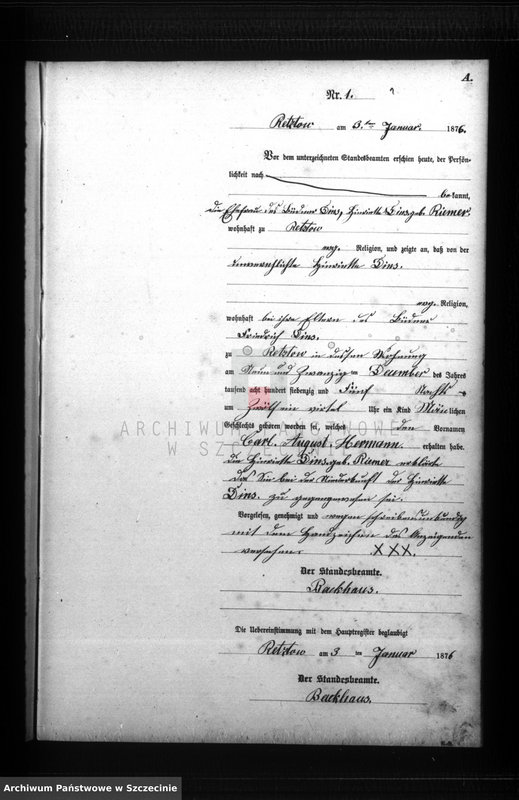 A.
Nr. 1.
Retztow am 3. ten Januar. 1876.
Vor dem unterzeichneten Standesbeamten erschien heute, der Persön-
lichkeit nach
be kannt,
die Ehefrau des Büdner Dins, Henriette Dins geb. Riemer
wohnhaft zu Retztow
evg. Religion, und zeigte an, daß von der
unverehelichte Henriette Dins.
evg. Religion,
wohnhaft bei ihre Eltern des Büdner
Friedrich Dins.
zu Retztow in dessen Wohnung
am Neun und Zwanzig ten December des Jahres
tausend acht hundert siebenzig und Fünf Nachts
um Zwölf ein viertel Uhr ein Kind Männ lichen
Geschlechts geboren worden sei, welches den Vornamen
Carl. August. Hermann. erhalten habe.
die Henriette Dins. geb. Riemer erklärte
das Sie bei der Niederkunft der Henriette
Dins. zu gegen gewesen sei.
Vorgelesen, genehmigt und wegen schreibensunkundig
mit dem Handzeichen des Anzeigenden
versehen. XXX.
Der Standesbeamte.
Backhaus.
Die Uebereinstimmung mit dem Hauptregister beglaubigt
Retztow am 3 ten Januar 1876
Der Standesbeamte.
Backhaus.
ARCHIWUM PAŃSTWOWE
W SZCZECINIE
Archiwum Państwowe w Szczecinie